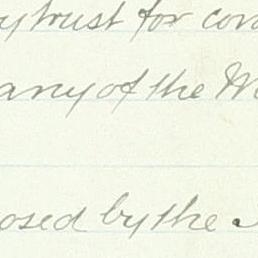 trust for
any of the
osed by the